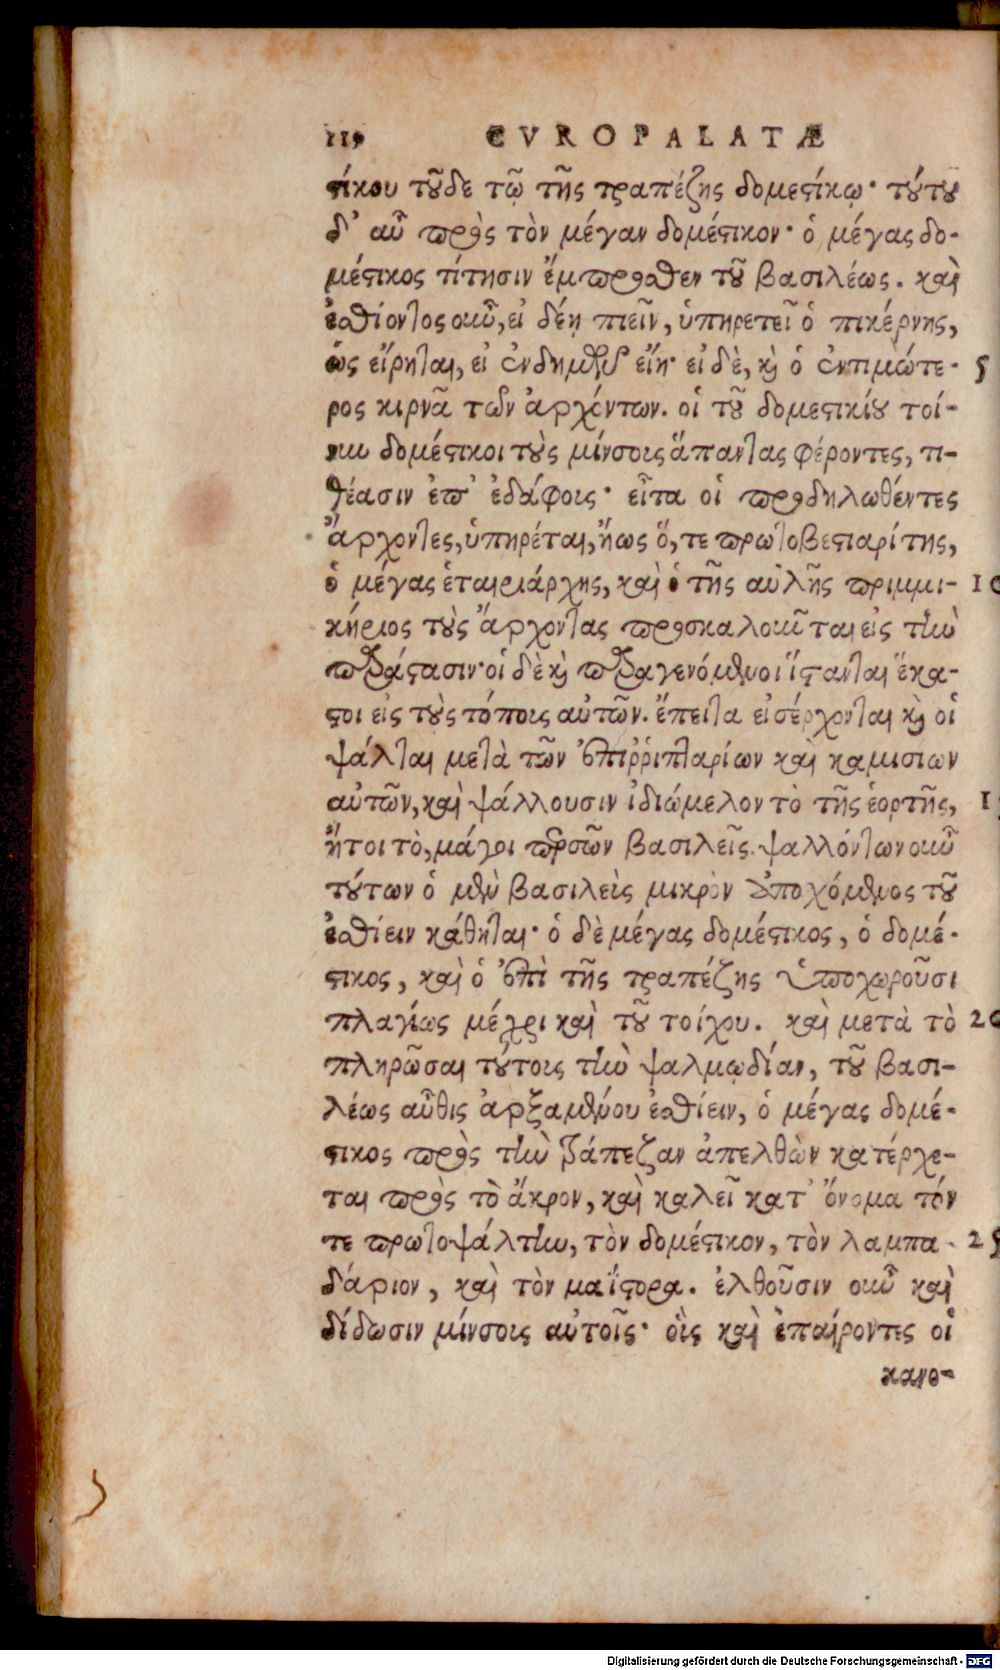 119 CVROPALATÆ
στίκου τοῦδε τῷ τῆς τραπέζης δομεστίκῳ· τούτου
δ’ αὖ πρὸς τὸν μέγαν δομέστικον· ὁ μέγας δο-
μέστικος τίτησιν ἔμπροσθεν τοῦ βασιλέως. καὶ
ἐσθίοντος οὖν, εἰ δέῃ πιεῖν, ὑπηρετεῖ ὁ πικέρνης,
ὡς εἴρηται, εἰ ἐνδημῶν εἴη· εἰ δὲ, καὶ ὁ ἐντιμώτε- 5
ρος κιρνᾷ τῶν ἀρχόντων. οἱ τοῦ δομεστικίου τοί-
νυν δομέστικοι τοὺς μίνσους ἅπαντας φέροντες, τι-
θέασιν ἐπ’ ἐδάφους· εἶτα οἱ προδηλωθέντες
ἄρχοντες, ὑπηρέται, ἤως ὅ, τε πρωτοβεστιαρίτης,
ὁ μέγας ἑταιριάρχης, καὶ ὁ τῆς αὐλῆς πριμμι- 10
κήριος τοὺς ἄρχοντας προσκαλοῦνται εἰς τὴν
παράστασιν· οἱ δὲ καὶ παραγενόμενοι ἵστανται ἕκα-
στοι εἰς τοὺς τόπους αὐτῶν. ἔπειτα εἰσέρχονται καὶ οἱ
ψάλται μετὰ τῶν ἐπιῤῥιπταρίων καὶ καμισιων
αὐτῶν, καὶ ψάλλουσιν ἰδιώμελον τὸ τῆς ἑορτῆς,
ἤτοι τὸ, μάγοι περσῶν βασιλεῖς. ψαλλόντων οὖν
τούτων ὁ μὲν βασιλεὺς μικρὸν ἀποχόμενος τοῦ
ἐσθίειν κάθηται· ὁ δὲ μέγας δομέστικος, ὁ δομέ-
στικος, καὶ ὁ ἐπὶ τῆς τραπέζης ὑποχωροῦσι
πλαγίως μέχρι καὶ τοῦ τοίχου. καὶ μετὰ τὸ 20
πληρῶσαι τούτους τὴν ψαλμῳδίαν, τοῦ βασι-
λέως αὖθις ἀρξαμένου ἐσθίειν, ὁ μέγας δομέ-
στικος πρὸς τὴν τράπεζαν ἀπελθὼν κατέρχε-
ται πρὸς τὸ ἄκρον, καὶ καλεῖ κατ’ ὄνομα τόν
τε πρωτοψάλτην, τὸν δομέστικον, τὸν λαμπα- 25
δάριον, καὶ τὸν μαΐστορα. ἐλθοῦσιν οὖν καὶ
δίδωσιν μίνσους αὐτοῖς· οὓς καὶ ἐπαίροντες οἱ
κανο-
Digitalisierung gefördert durch die Deutsche Forschungsgemeinschaft - DFG